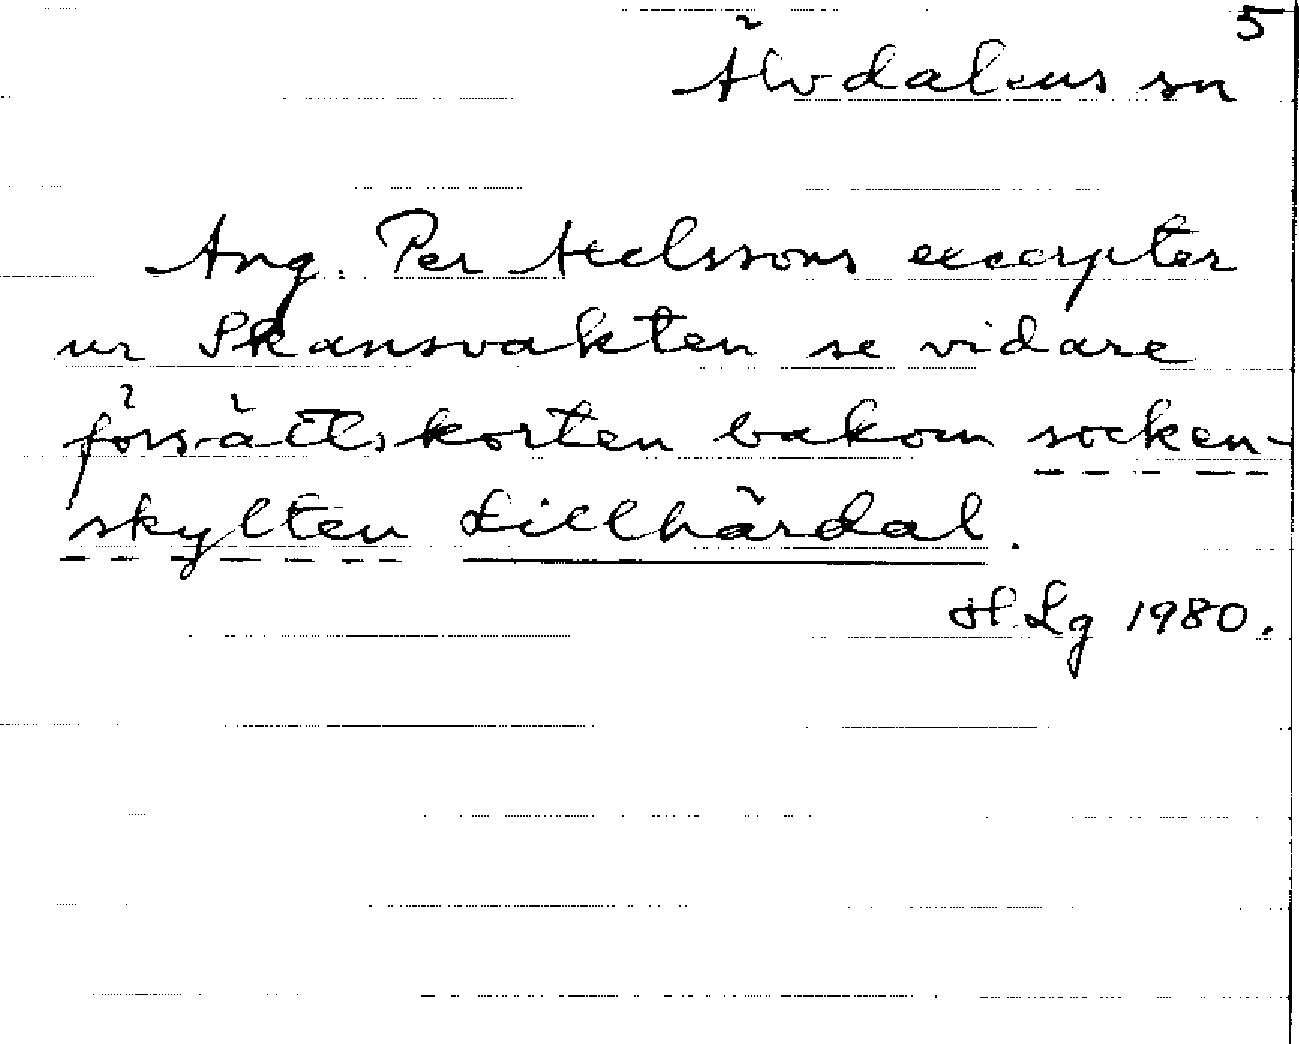 5
Älvdalens sn
Ang. Per Axelssons excerpter
ur Skansvakten se vidare
försättskorten bakom socken-
skylten Lillhärdal.
H. Lg 1980.